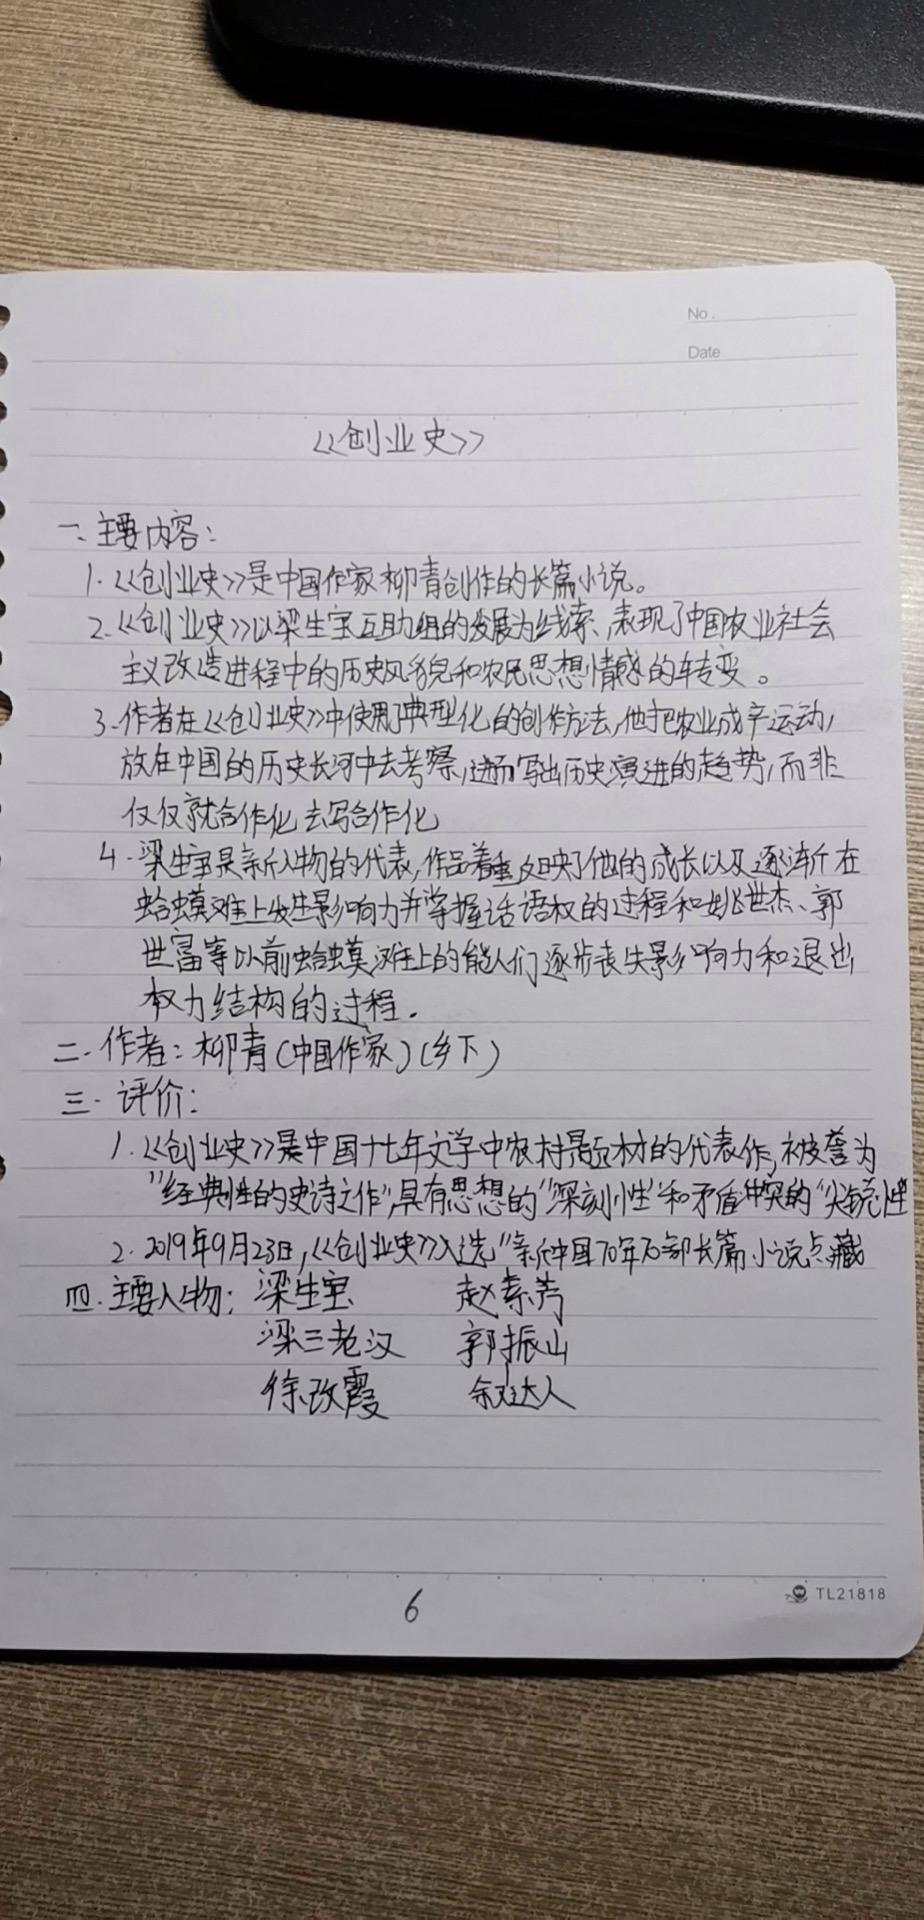 No.
Date
《创业史》
一、主要内容：
1.《创业史》是中国作家柳青创作的长篇小说。
2.《创业史》以梁生宝互助组的发展为线索，表现了中国农业社会
主义改造进程中的历史风貌和农民思想情感的转变。
3.作者在《创业史》中使用了典型化的创作方法，他把农业成辛运动，
放在中国的历史长河中去考察，进而写出历史演进的趋势，而非
仅仅就合作化去写合作化
4.梁生宝是新人物的代表，作品着重反映了他的成长以及逐渐在
蛤蟆滩上发生影响力并掌握话语权的过程和姚世杰、郭
世富等以前蛤蟆滩上的能人们逐步丧失影响力和退出
权力结构的过程.
二.作者：柳青(中国作家)(乡下)
三.评价：
1.《创业史》是中国十七年文学中农村题材的代表作，被誉为
"经典性的史诗之作"，具有思想的"深刻性"和矛盾冲突的"尖锐性
2.2019年9月23日，《创业史》入选"新中国70年70部长篇小说点藏
四.主要人物：梁生宝 赵素芳
梁三老汉 郭振山
徐改霞 叙述人
6
TL21818